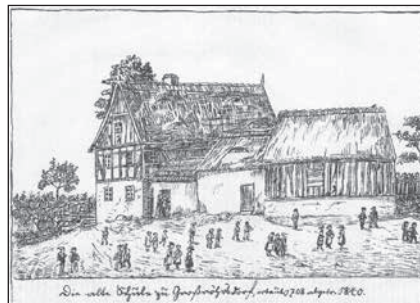 Die alte Schule zu Großröhrsdorf, erbaut 1708 abgebr. 1840.